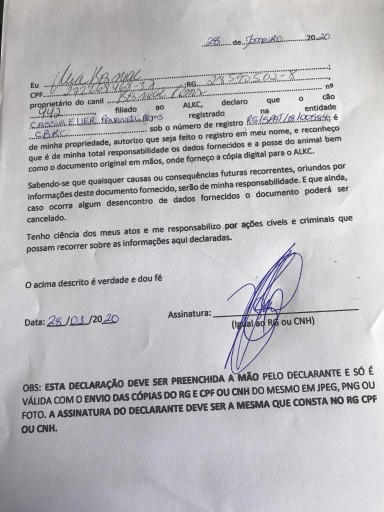 28 de Janeiro 2020
Eu
CPF :RG 28.550.502-8 :
proprietário do canil nº
442 filiado ao ALKC, declaro que o cão
registrado na entidade
CBRC sob o número de registro é
de minha propriedade, autorizo que seja feito o registro em meu nome, e reconheço
que é de minha total responsabilidade os dados fornecidos e a posse do animal bem
como o documento original em mãos, onde forneço a cópia digital para o ALKC.
Sabendo-se que quaisquer causas ou consequências futuras recorrentes, oriundos por
informações deste documento fornecido, serão de minha responsabilidade. E que ainda,
caso ocorra algum desencontro de dados fornecidos o documento poderá ser
cancelado.
Tenho ciência dos meus atos e me responsabilizo por ações cíveis e criminais que
possam recorrer sobre as informações aqui declaradas.
O acima descrito é verdade e dou fé
Assinatura:
Data: 28/01/2020
(Igual ao RG ou CNH)
OBS: ESTA DECLARAÇÃO DEVE SER PREENCHIDA A MÃO PELO DECLARANTE E SÓ É
VÁLIDA COM O ENVIO DAS CÓPIAS DO RG E CPF OU CNH DO MESMO EM JPEG, PNG OU
FOTO. A ASSINATURA DO DECLARANTE DEVE SER A MESMA QUE CONSTA NO RG CPF
OU CNH.